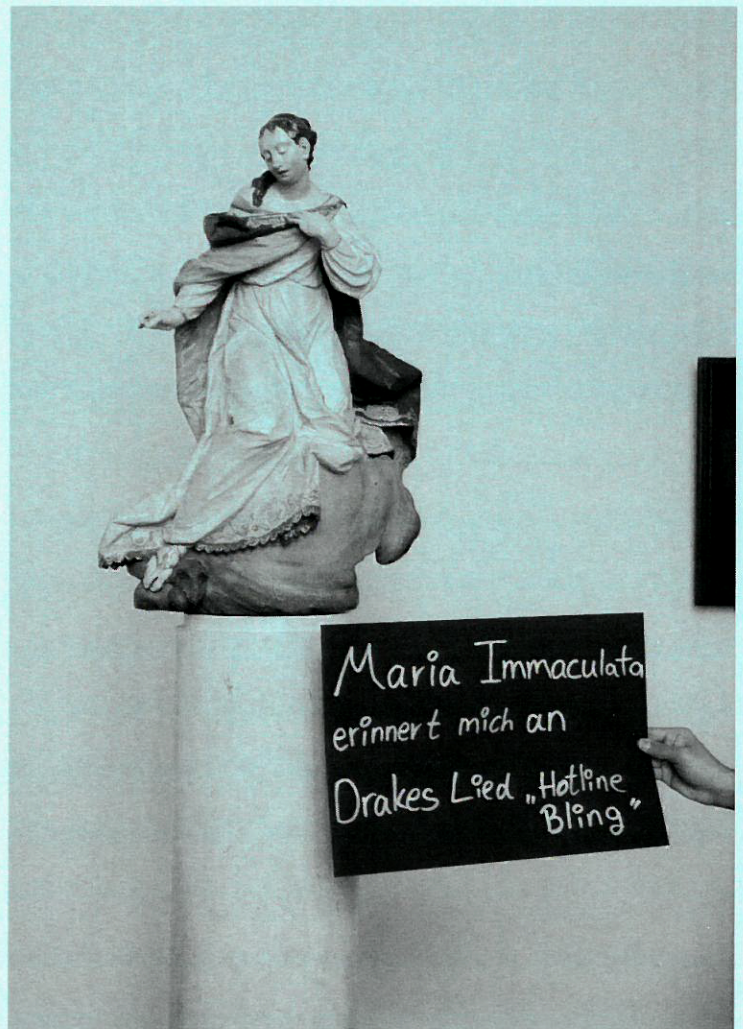 Maria Immaculata
erinnert mich an
Drakes Lied „Hotline
Bling"